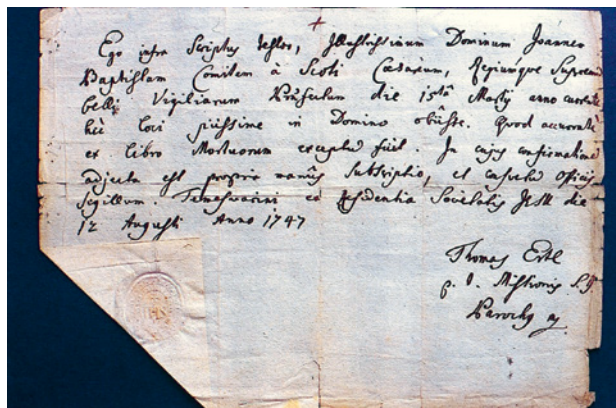 Ego infra Scriptus testor, Illustrissimum Dominum Joannem
Baptistam Comitem à Scoti Cæsareum, Regiumque Supremum
belli Vigiliarum Præfectum die 15tâ Martij anno currente
hic loci piissime in Domino obiisse. Quod accuratè
ex Libro Mortuorum exceptum fuit. In cujus confirmationem
adjecta est propria manûs subscriptio, et consueto Officij
Sigillum. Temesvarini ex Residentia Societatis JESU die
12 Augusti Anno 1747
Thomas Ertl
p. t. Missionis S. J.
Parochus